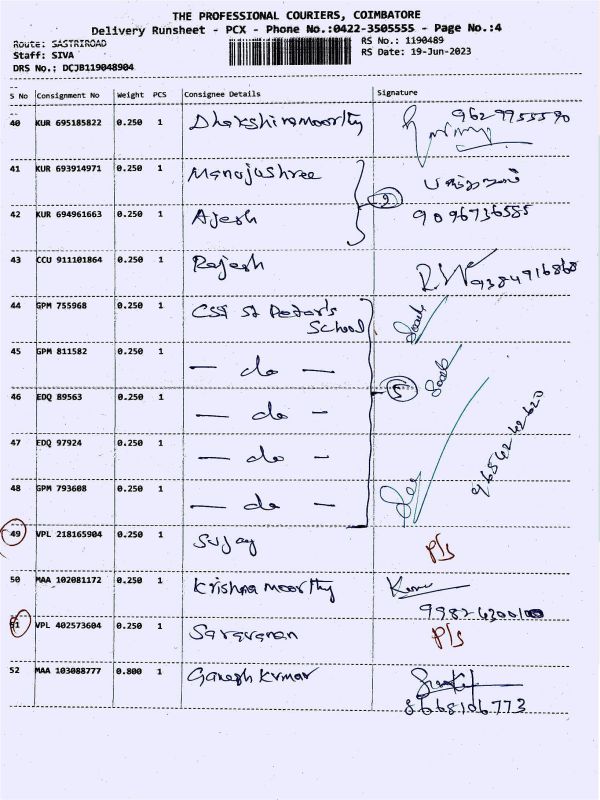 THE PROFESSIONAL COURIERS, COIMBATORE
Delivery Runsheet - PCX - Phone No.:0422-3505555 - Page No.:4
Route: SASTRIROAD
RS No.: 1190489
Staff: SIVA
RS Date: 19-Jun-2023
DRS No.: DCJB119048904
S No Consignment No Weight PCS Consignee Details Signature
40 KUR 695185822 0.250 1 Dhakshinamoorthy 9629955590
41 KUR 693914971 0.250 1 Manojushree
2
42 KUR 694961663 0.250 1 Ajesh 9096736585
43 CCU 911101864 0.250 1 Rajesh 9384916868
44 GPM 755968 0.250 1 CSI St Peter's
School
45 GPM 811582 0.250 1 — do —
5
46 EDQ 89563 0.250 1 — do —
47 EDQ 97924 0.250 1 — do —
48 GPM 793608 0.250 1 — do —
49 VPL 218165904 0.250 1 Sujay P/s
50 MAA 102081172 0.250 1 Krishna moorthy
51 VPL 402573604 0.250 1 Saravanan P/s
52 MAA 103088777 0.800 1 Ganesh Kumar
8668106773